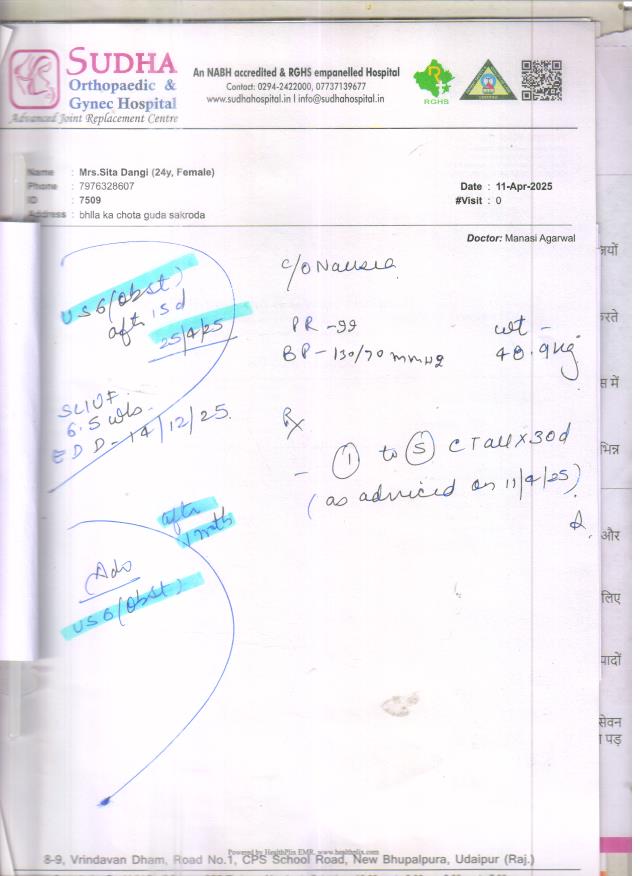 SUDHA
Orthopaedic &
Gynec Hospital
Advanced Joint Replacement Centre
An NABH accredited & RGHS empanelled Hospital
Contact: 0294-2422000, 07737139677
www.sudhahospital.in | info@sudhahospital.in
RGHS
Name : Mrs.Sita Dangi (24y, Female)
Phone : 7976328607
ID : 7509
Address : bhlla ka chota guda sakroda
Date : 11-Apr-2025
#Visit : 0
Doctor: Manasi Agarwal
USG (Obst)
after 15d
25/4/25
SLIUF
6.5 wks.
EDD - 14/12/25.
C/O Nausea
PR - 99
BP - 130/70 mmHg
wt -
48.9kg
Rx
- 1 to 5 CT all x 30d
(as adviced on 11/4/25)
after
1 mth
Adv
USG (Obst)
यों
रते
स में
भिन्न
और
लिए
पादों
सेवन
पड़
Powered by HealthPlix EMR. www.healthplix.com
8-9, Vrindavan Dham, Road No.1, CPS School Road, New Bhupalpura, Udaipur (Raj.)